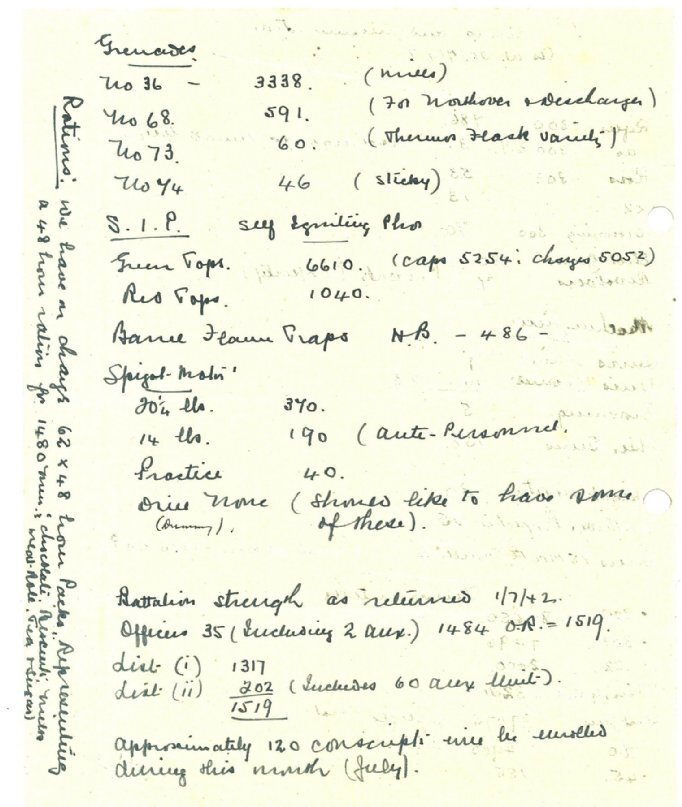 Grenades.
No 36 - 3338. (Mills)
No 68. 591. (For Northover & Discharger)
No 73. 60. (Thermos Flask Variety)
No 74 46 (Sticky)
S.I.P. Self Igniting Phos
Green Tops. 6610. (caps 5254: charges 5052)
Red Tops. 1040.
Barrel Flame Traps N.B. - 486 -
Spigot Mortr'
20¼ lbs. 370.
14 lbs. 190 (Ante-Personnel.
Practice 40.
Drill None (Should like to have some
(Dummy). of these).
Battalion strength as returned 1/7/42.
Officers 35 (Including 2 Aux.) 1484 O.R. = 1519.
List (i) 1317
List (ii) 202 (Includes 60 Aux Unit).
1519
Approximately 120 conscripts will be enrolled
during this month (July).
Rations: We have on charge 62 x 48 hour Packs. Representing
a 48 hour ration for 1480 men: chocolate Biscuits
Meat Roll. Tea & Sugar)